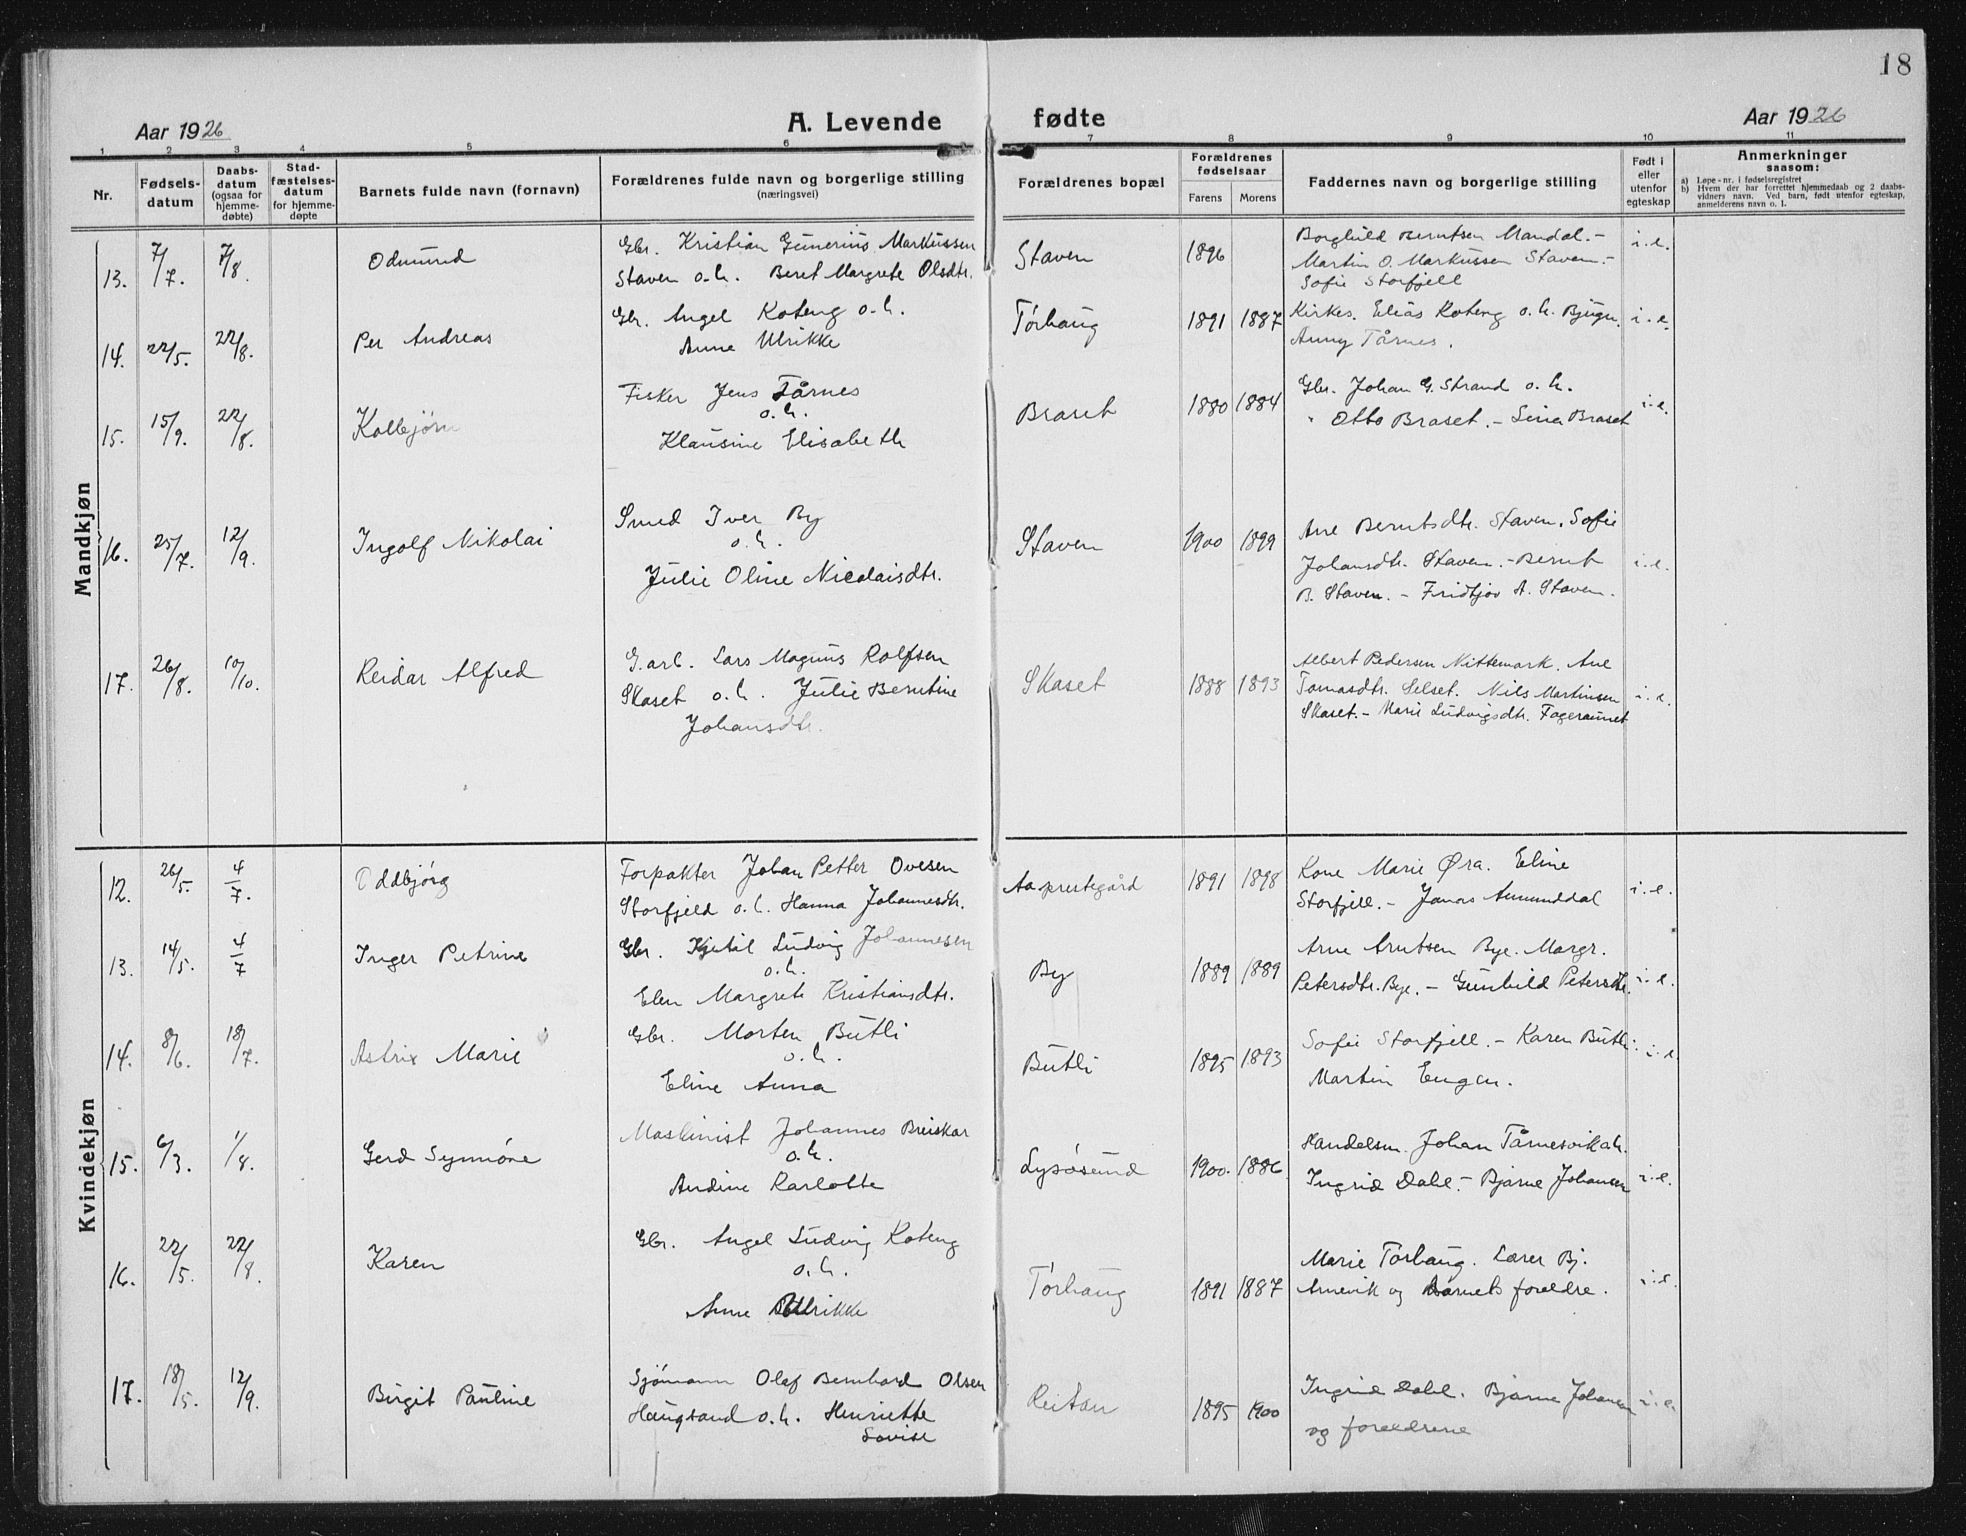 18
Aar 1926
A. Levende fødte
Aar 1926
1 2 3 4 5 6 7 8 9 10 11
Nr.
Fødsels-
datum
Daabs-
datum
(ogsaa for
hjemme-
døbte)
Stad-
fæstelses-
datum
for hjemme-
døpte
Barnets fulde navn (fornavn)
Forældrenes fulde navn og borgerlige stilling
(næringsvei)
Forældrenes bopæl
Forældrenes
fødselsaar
Farens Morens
Faddernes navn og borgerlige stilling
Født i
eller
utenfor
egteskap
Anmerkninger
saasom:
a) Løpe-nr. i fødselsregistret
b) Hvem der har forrettet hjemmedaab og 2 daabs-
vidners navn. Ved barn, født utenfor egteskap,
anmelderens navn o. l.
Mandkjøn
13. 7/7. 7/8. Odmund
Gbr. Kristian Gunerius Markussen
Staven o.h. Beret Margrete Olsdtr.
Staven 1896
Borghild Berntsen Mandal. –
Martin O. Markussen Staven. –
Sofie Storfjell
i. e.
14. 22/5. 22/8. Per Andreas
Gbr. Angel Koteng o.h.
Anne Ulrikke
Tørhaug 1891 1887
Kirkes. Elias Koteng o.h. Bjugn.
Anny Tårnes.
i. e.
15. 15/9. 22/8. Kolbjørn
Fisker Jens Tårnes
o.h.
Klausine Elisabeth
Braset 1880 1884
Gbr. Johan G. Strand o.h.
" Otto Braset. – Lina Braset
i. e.
16. 25/7. 12/9. Ingolf Nikolai
Smed Iver By
o.h.
Julie Oline Nicolaisdtr.
Staven 1900 1899
Ane Berntsdtr. Staven. Sofie
Johansdtr. Staven. – Bernt
B. Staven. – Fridtjov A. Staven.
i. e.
17. 26/8. 10/10. Reidar Alfred
G.arb. Lars Magnus Rolfsen
Skaset o.h. Julie Berntine
Johansdtr.
Skaset 1888 1893
Albert Pedersen Nittemark. Ane
Tomasdtr. Selset. Nils Martinsen
Skaset. – Marie Ludvigsdtr. Fageraunet
i. e.
Kvindekjøn
12. 26/5. 4/7. Oddbjørg
Forpakter Johan Petter Ovesen
Storfjeld o.h. Hanna Johannesdtr.
Aa prestegård 1891 1898
Kone Marie Øra. Eline
Storfjell. – Jonas Amunddal
i. e.
13. 14/5. 4/7 Inger Petrine
Gbr. Kjetil Ludvig Johannesen
o.h.
Elen Margrete Kristiansdtr.
By 1889 1889
Arne Arntsen Bye. Margr.
Petersdtr. Bye. – Gunhild Petersdtr.
i. e.
14. 8/6. 18/7. Astrix Marie
Gbr. Morten Butli
o.h.
Eline Anna
Butli 1895 1893
Sofie Storfjell. – Karen Butli.
Martin Eugen.
i. e.
15. 6/3. 1/8. Gerd Synnøve
Maskinist Johannes Breiskar
o.h.
Andine Karlotte
Lysøsund 1900. 1886
Handelsm. Johan Tårnesvik o.h.
Ingrid Dahl. – Bjarne Johansen
i. e.
16. 22/5. 22/8. Karen
Gbr. Angel Ludvig Koteng
o.h.
Anne Ulrikke
Tørhaug 1891 1887
Marie Tørhaug. Lærer Bj.
Arnevik og barnets foreldre.
i. e.
17. 18/5. 12/9. Birgit Pauline
Sjømann Olaf Bernhard Olsen
Haugsand o.h. Henriette
Lovise
Reitan 1895 1900
Ingrid Dahl. Bjarne Johansen
og foreldrene
i. e.